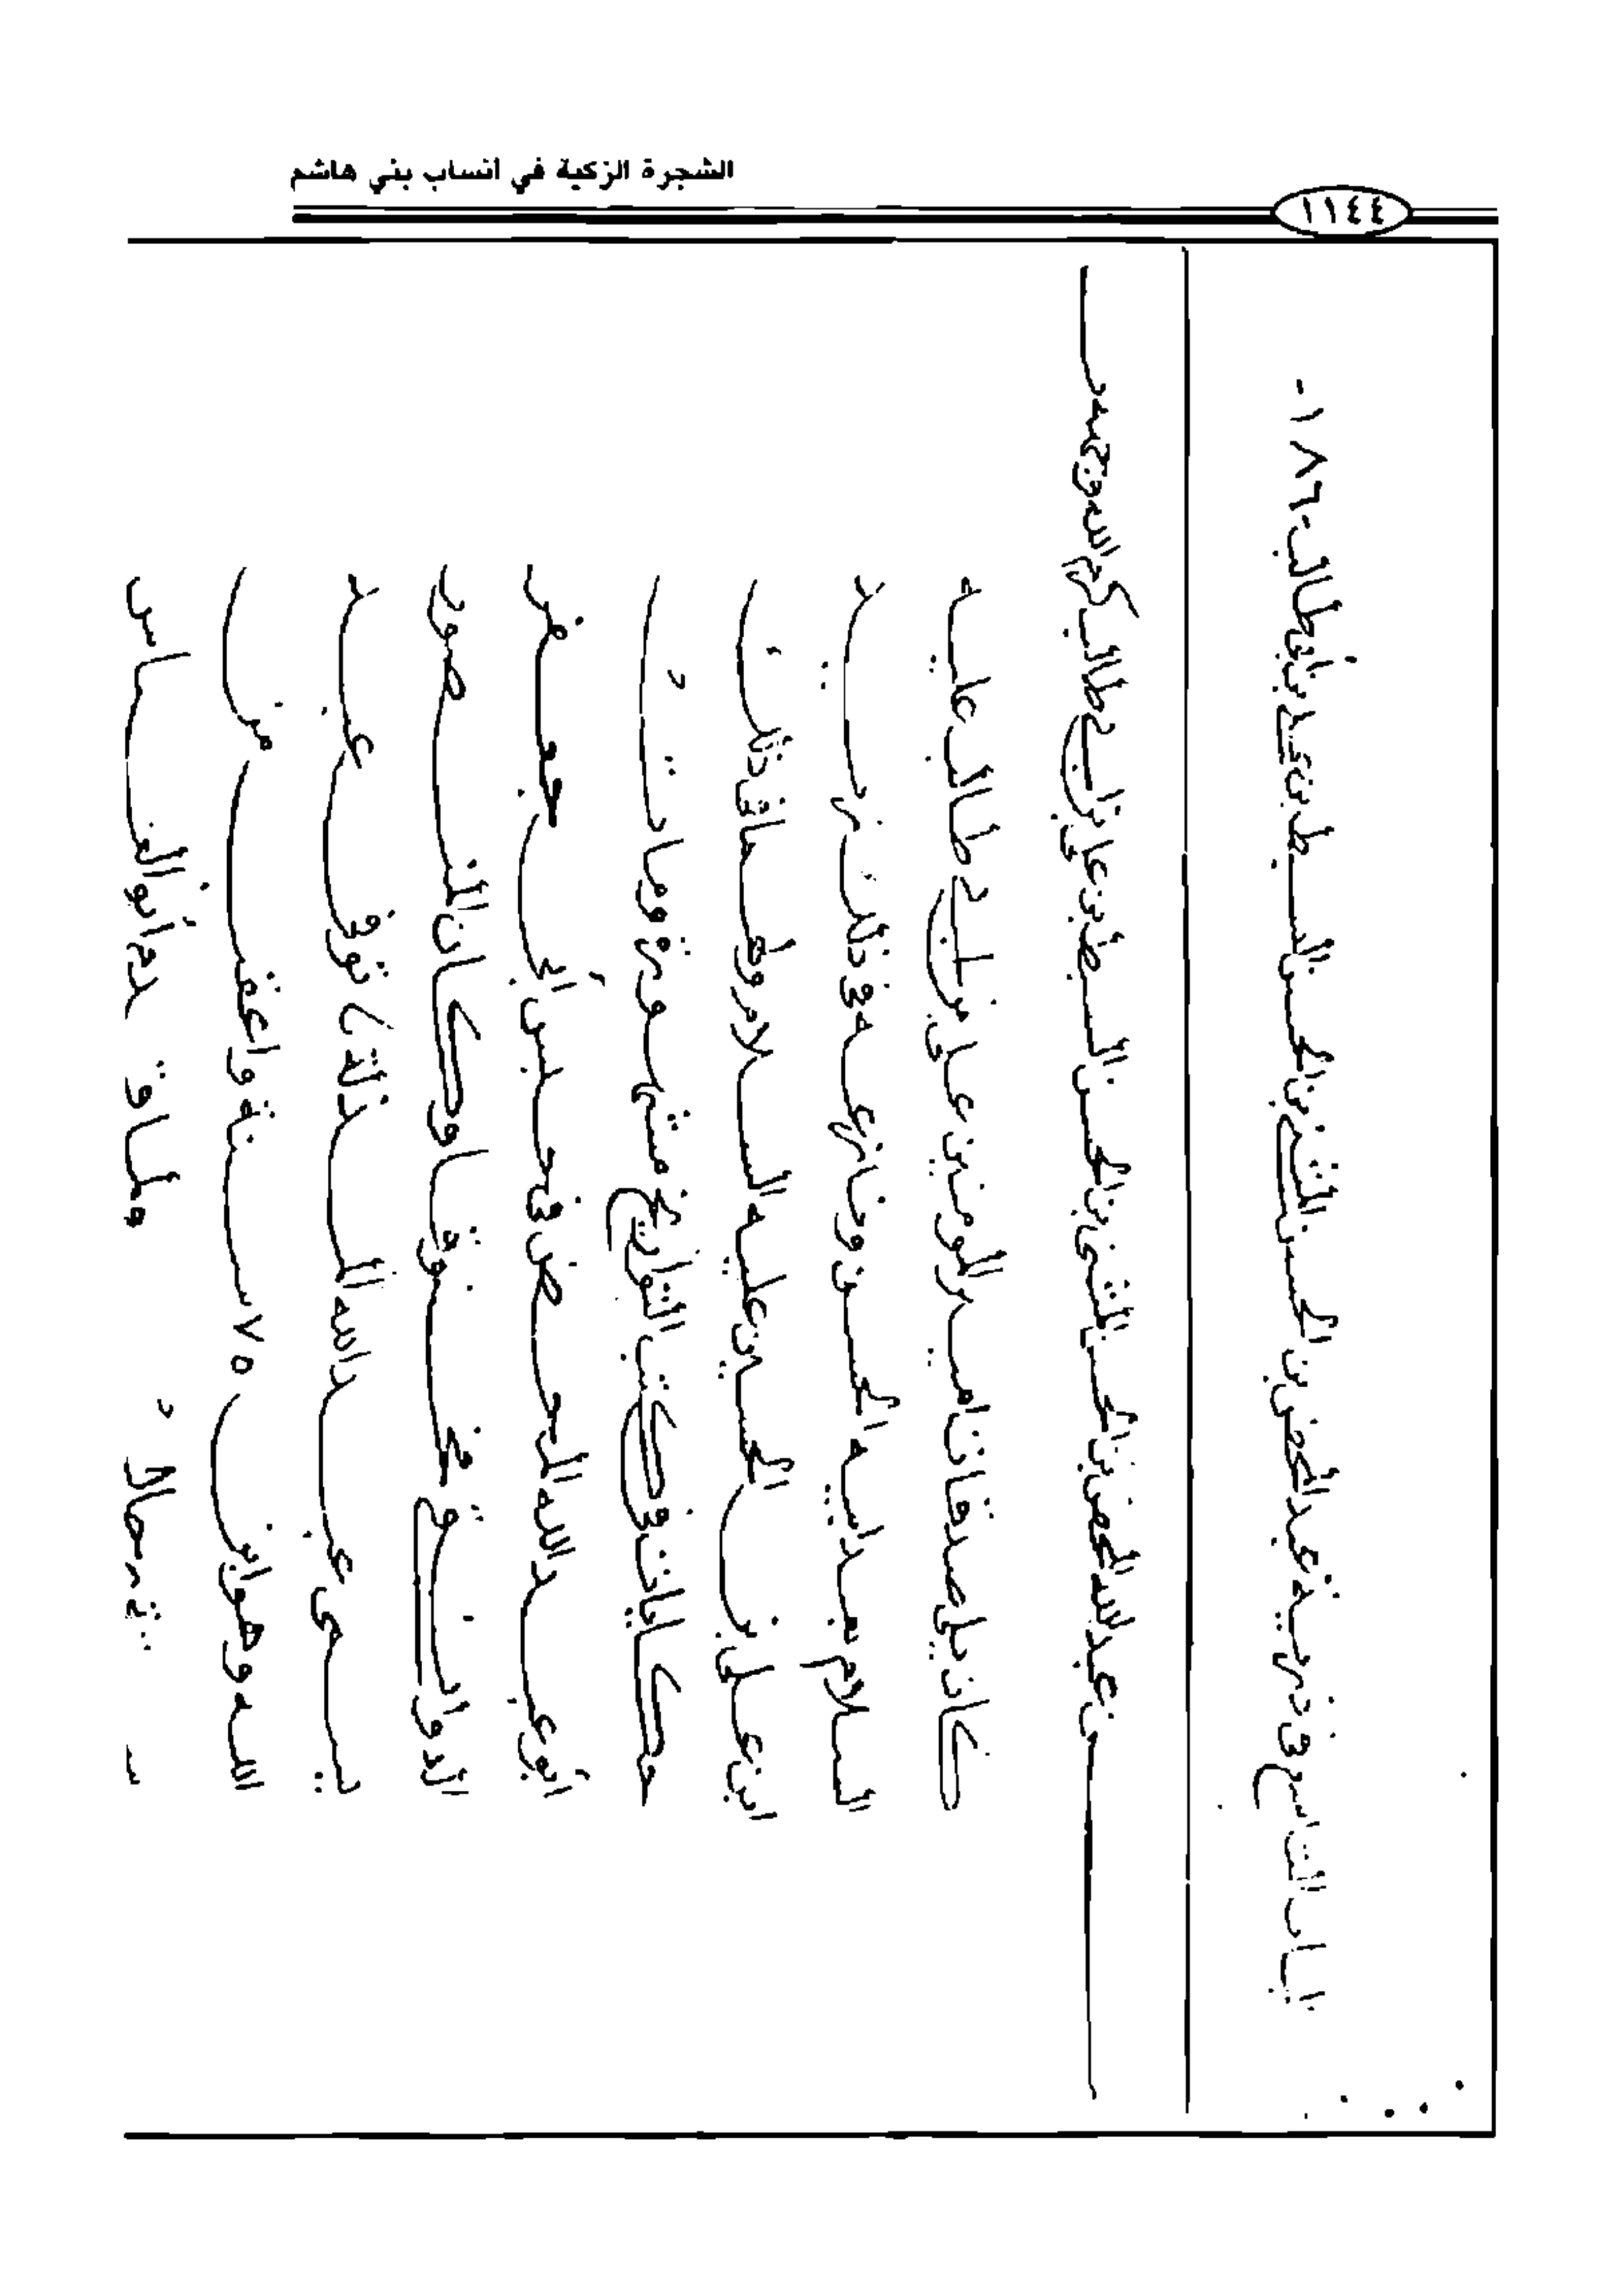 الشجرة الزكية في انساب بني هاشم
١١٤٤
الباب التاسع في ذرية عبدالمحض بن الحسن المثنى بن الحسن السبط بن علي بن أبي طالب -١٨٦-
من عبدالله المحض بن الحسن المثنى بن الحسن السبط بن علي بن أبي طالب كرم الله وجهه
كان يلي صدقات امير المؤمنين علي بن أبي طالب عليه
السلام بعد ابيه الحسن ونازعه في ذلك زيد
ابن علي بن الحسين عليه السلام في ذلك
حكايات في كتب التواريخ مشهورة ومات
أبو عبدالله المحض في حبس أبي جعفر
الدوانيقي مخنوقا وكان المنصور
يسمى عبدالله توفي عبد
الله وهو ابن ٧٥ سنة واعقب من